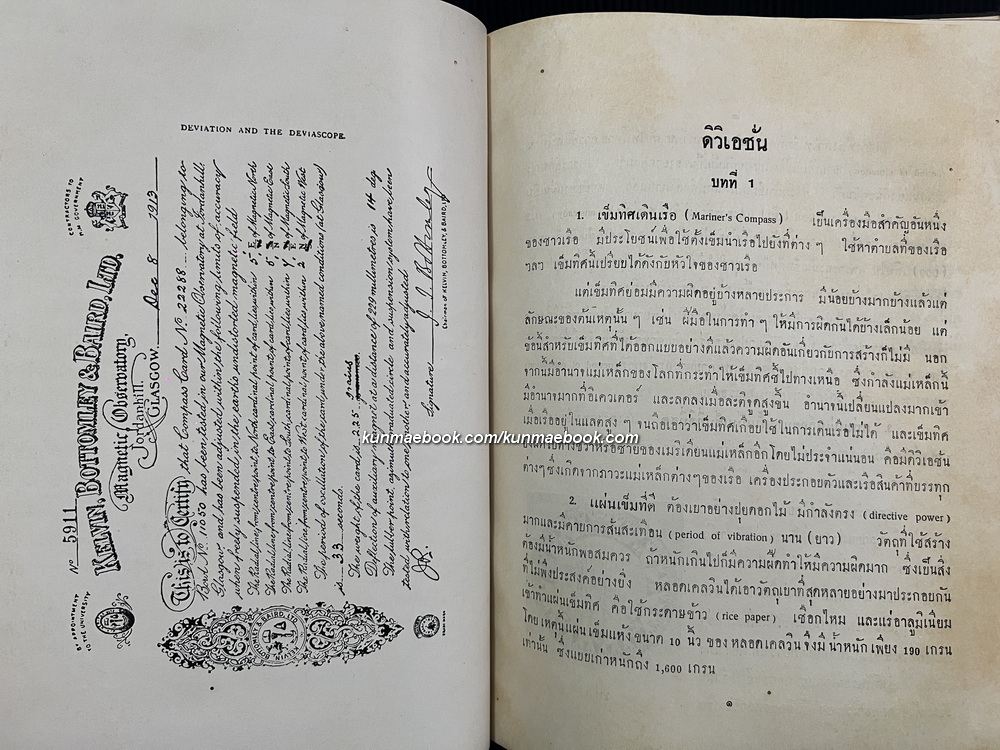 DEVIATION AND THE DEVIASCOPE.
CONTRACTORS TO
H.M. GOVERNMENT
BY APPOINTMENT
TO THE UNIVERSITY
Nº 5911
KELVIN, BOTTOMLEY & BAIRD, LTD.
Magnetic Observatory,
Jordanhill.
GLASGOW. Dec 8 1913
This is to Certify that Compass Card Nº 22288 belonging to
Bowl Nº 11050 has been tested in our Magnetic Observatory at Jordanhill,
Glasgow, and has been adjusted, within the following limits of accuracy
when freely suspended in the earth's undistorted magnetic field:
The Radial line from centre point to North cardinal point of card lies within 5' of Magnetic North
The Radial line from centre point to East cardinal point of card lies within 6' of Magnetic East
The Radial line from centre point to South cardinal point of card lies within of Magnetic South
The Radial line from centre point to West cardinal point of card lies within 2' of Magnetic West
The period of oscillation of the card under the above named conditions (at Glasgow)
is 33 seconds.
The weight of the card is 3,225 grains
Deflection of auxiliary magnet at a distance of 229 millimetres is 14 deg
The rubber point, azimuth card and suspension system have been
tested with relation to one another and accurately adjusted
Signature
Chairman of KELVIN, BOTTOMLEY, & BAIRD, LTD
KELVIN BOTTOMLEY & BAIRD LTD
ดิวิเอชั่น
บทที่ 1
1. เข็มทิศเดินเรือ (Mariner's Compass) เป็นเครื่องมือสำคัญอันหนึ่ง
ของชาวเรือ มีประโยชน์เพื่อใช้ตั้งเข็มนำเรือไปยังที่ต่าง ๆ ใช้หาตำบลที่ของเรือ
ฯลฯ เข็มทิศนี้เปรียบได้ดังกับหัวใจของชาวเรือ
แต่เข็มทิศย่อมมีความผิดอยู่บ้างหลายประการ มีน้อยบ้างมากบ้างแล้วแต่
ลักษณะของต้นเหตุนั้น ๆ เช่น ฝีมือในการทำ ๆ ให้มีการผิดกันได้บ้างเล็กน้อย แต่
ข้อนี้สำหรับเข็มทิศที่ได้ออกแบบอย่างดีแล้วความผิดอันเกี่ยวกับการสร้างก็ไม่มี นอก
จากนี้มีอำนาจแม่เหล็กของโลกที่กระทำให้เข็มทิศชี้ไปทางเหนือ ซึ่งกำลังแม่เหล็กนี้
มีอำนาจมากที่อิเควเตอร์ และลดลงเมื่อละติจูดสูงขึ้น อำนาจนี้เปลี่ยนแปลงมากเข้า
เมื่อเรืออยู่ในแลตสูง ๆ จนถือเอาว่าเข็มทิศเกือบใช้ในการเดินเรือไม่ได้ และเข็มทิศ
ยังผิดไปทางขวาหรือซ้ายของเมริเดียนแม่เหล็กอีกโดยไม่ประจำแน่นอน คือมีดิวิเอชั่น
ต่างๆซึ่งเกิดจากภาวะแม่เหล็กต่างๆของเรือ เครื่องประกอบตัวและเรือสินค้าที่บรรทุก
2. แผ่นเข็มที่ดี ต้องเบาอย่างปุยดอกไม้ มีกำลังตรง (directive power)
มากและมีคาบการสั่นสะเทือน (period of vibration) นาน (ยาว) วัตถุที่ใช้สร้าง
ต้องมีน้ำหนักพอสมควร ถ้าหนักเกินไปก็มีความผิดทำให้มีความผิดมาก ซึ่งเป็นสิ่ง
ที่ไม่พึงประสงค์อย่างยิ่ง หลอดเคลวินได้เอาวัตถุเบาที่สุดหลายอย่างมาประกอบกัน
เข้าทำแผ่นเข็มทิศ คือใช้กระดาษข้าว (rice paper) เชือกไหม และแร่อาลูมิเนียม
โดยเหตุนี้แผ่นเข็มแห้งขนาด 10 นิ้ว ของหลอดเคลวินจึงมีน้ำหนักเพียง 190 เกรน
เท่านั้น ซึ่งแบบเก่าหนักถึง 1,600 เกรน
๑
kunmaebook.com/kunmaebook.com